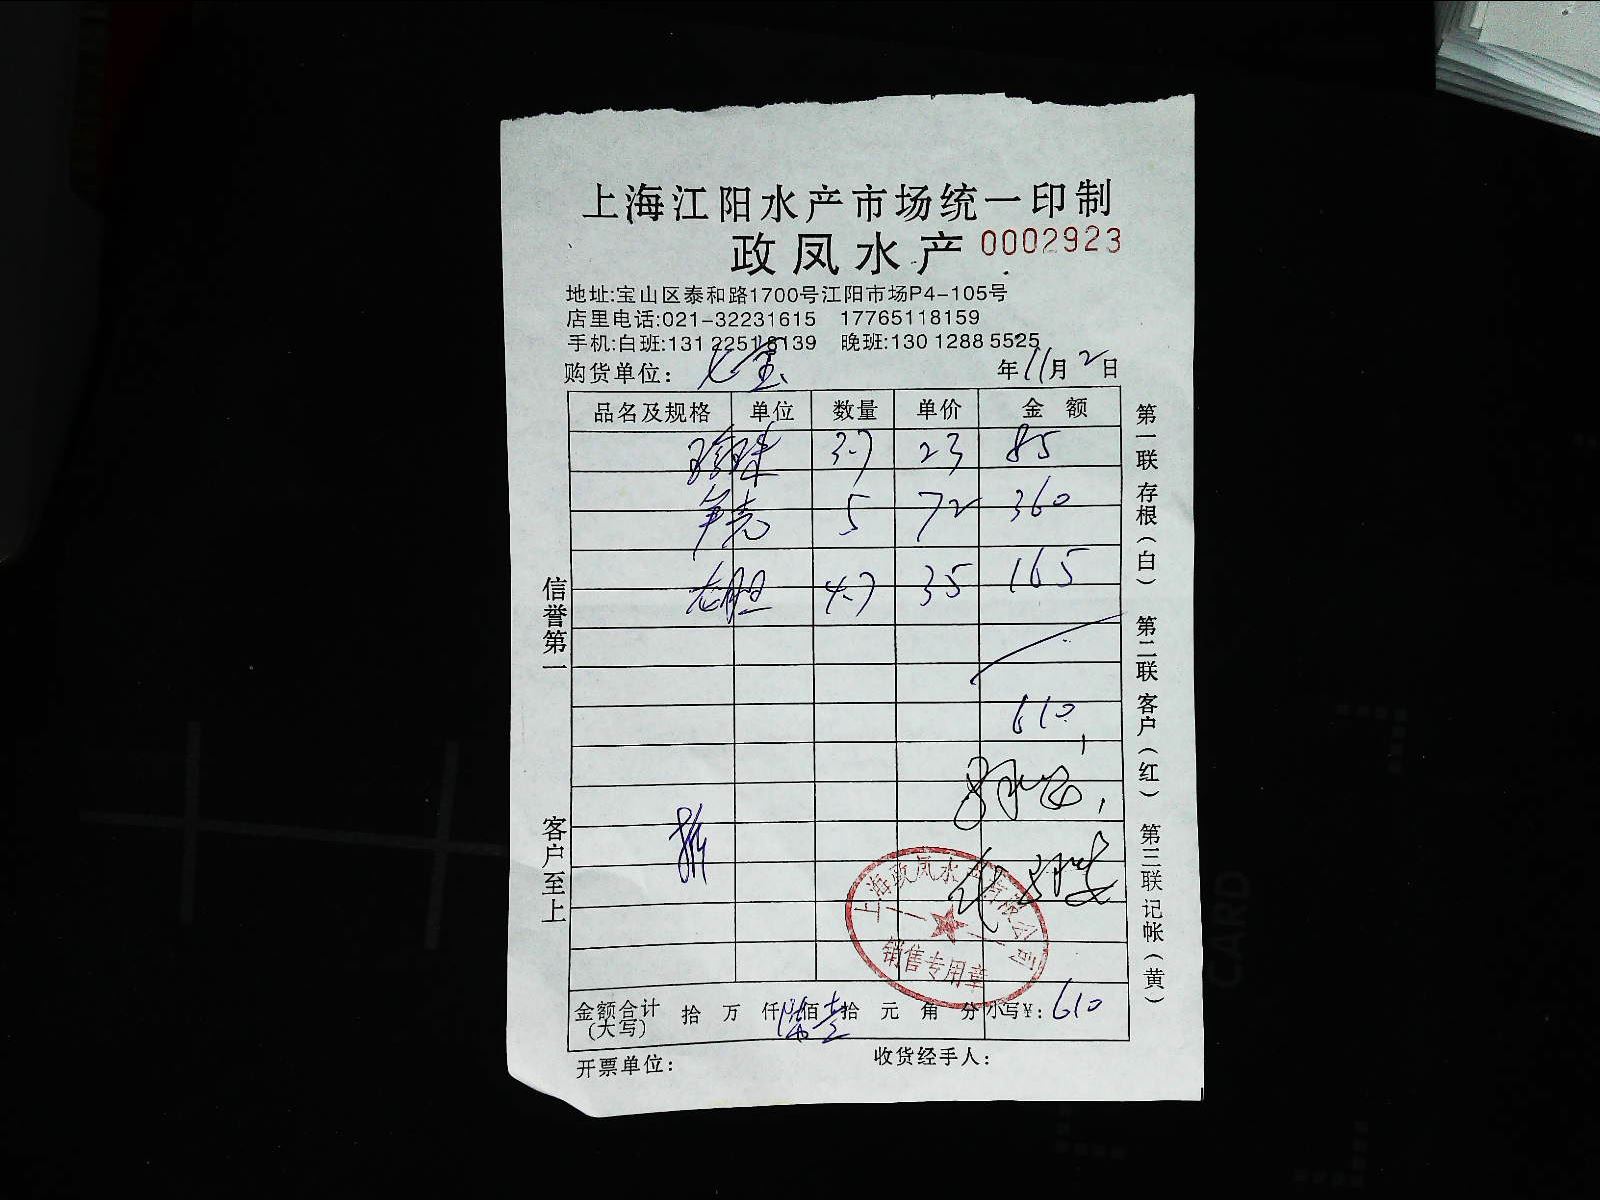 上海江阳水产市场统一印制
政凤水产 0002923
地址:宝山区泰和路1700号江阳市场P4-105号
店里电话:021-32231615 17765118159
手机:白班:131 2251 8139 晚班:130 1288 5525
购货单位: 七宝 年11月2日
品名及规格 单位 数量 单价 金额
珍珠 3.7 23 85
笋壳 5 72 360
龙胆 4.7 35 165
610
金额合计(大写) 拾 万 仟 陆佰 壹拾 元 角 分 小写¥: 610
开票单位: 收货经手人:
信誉第一
客户至上
第一联存根(白)
第二联客户(红)
第三联记帐(黄)
上海政凤水产有限公司
销售专用章